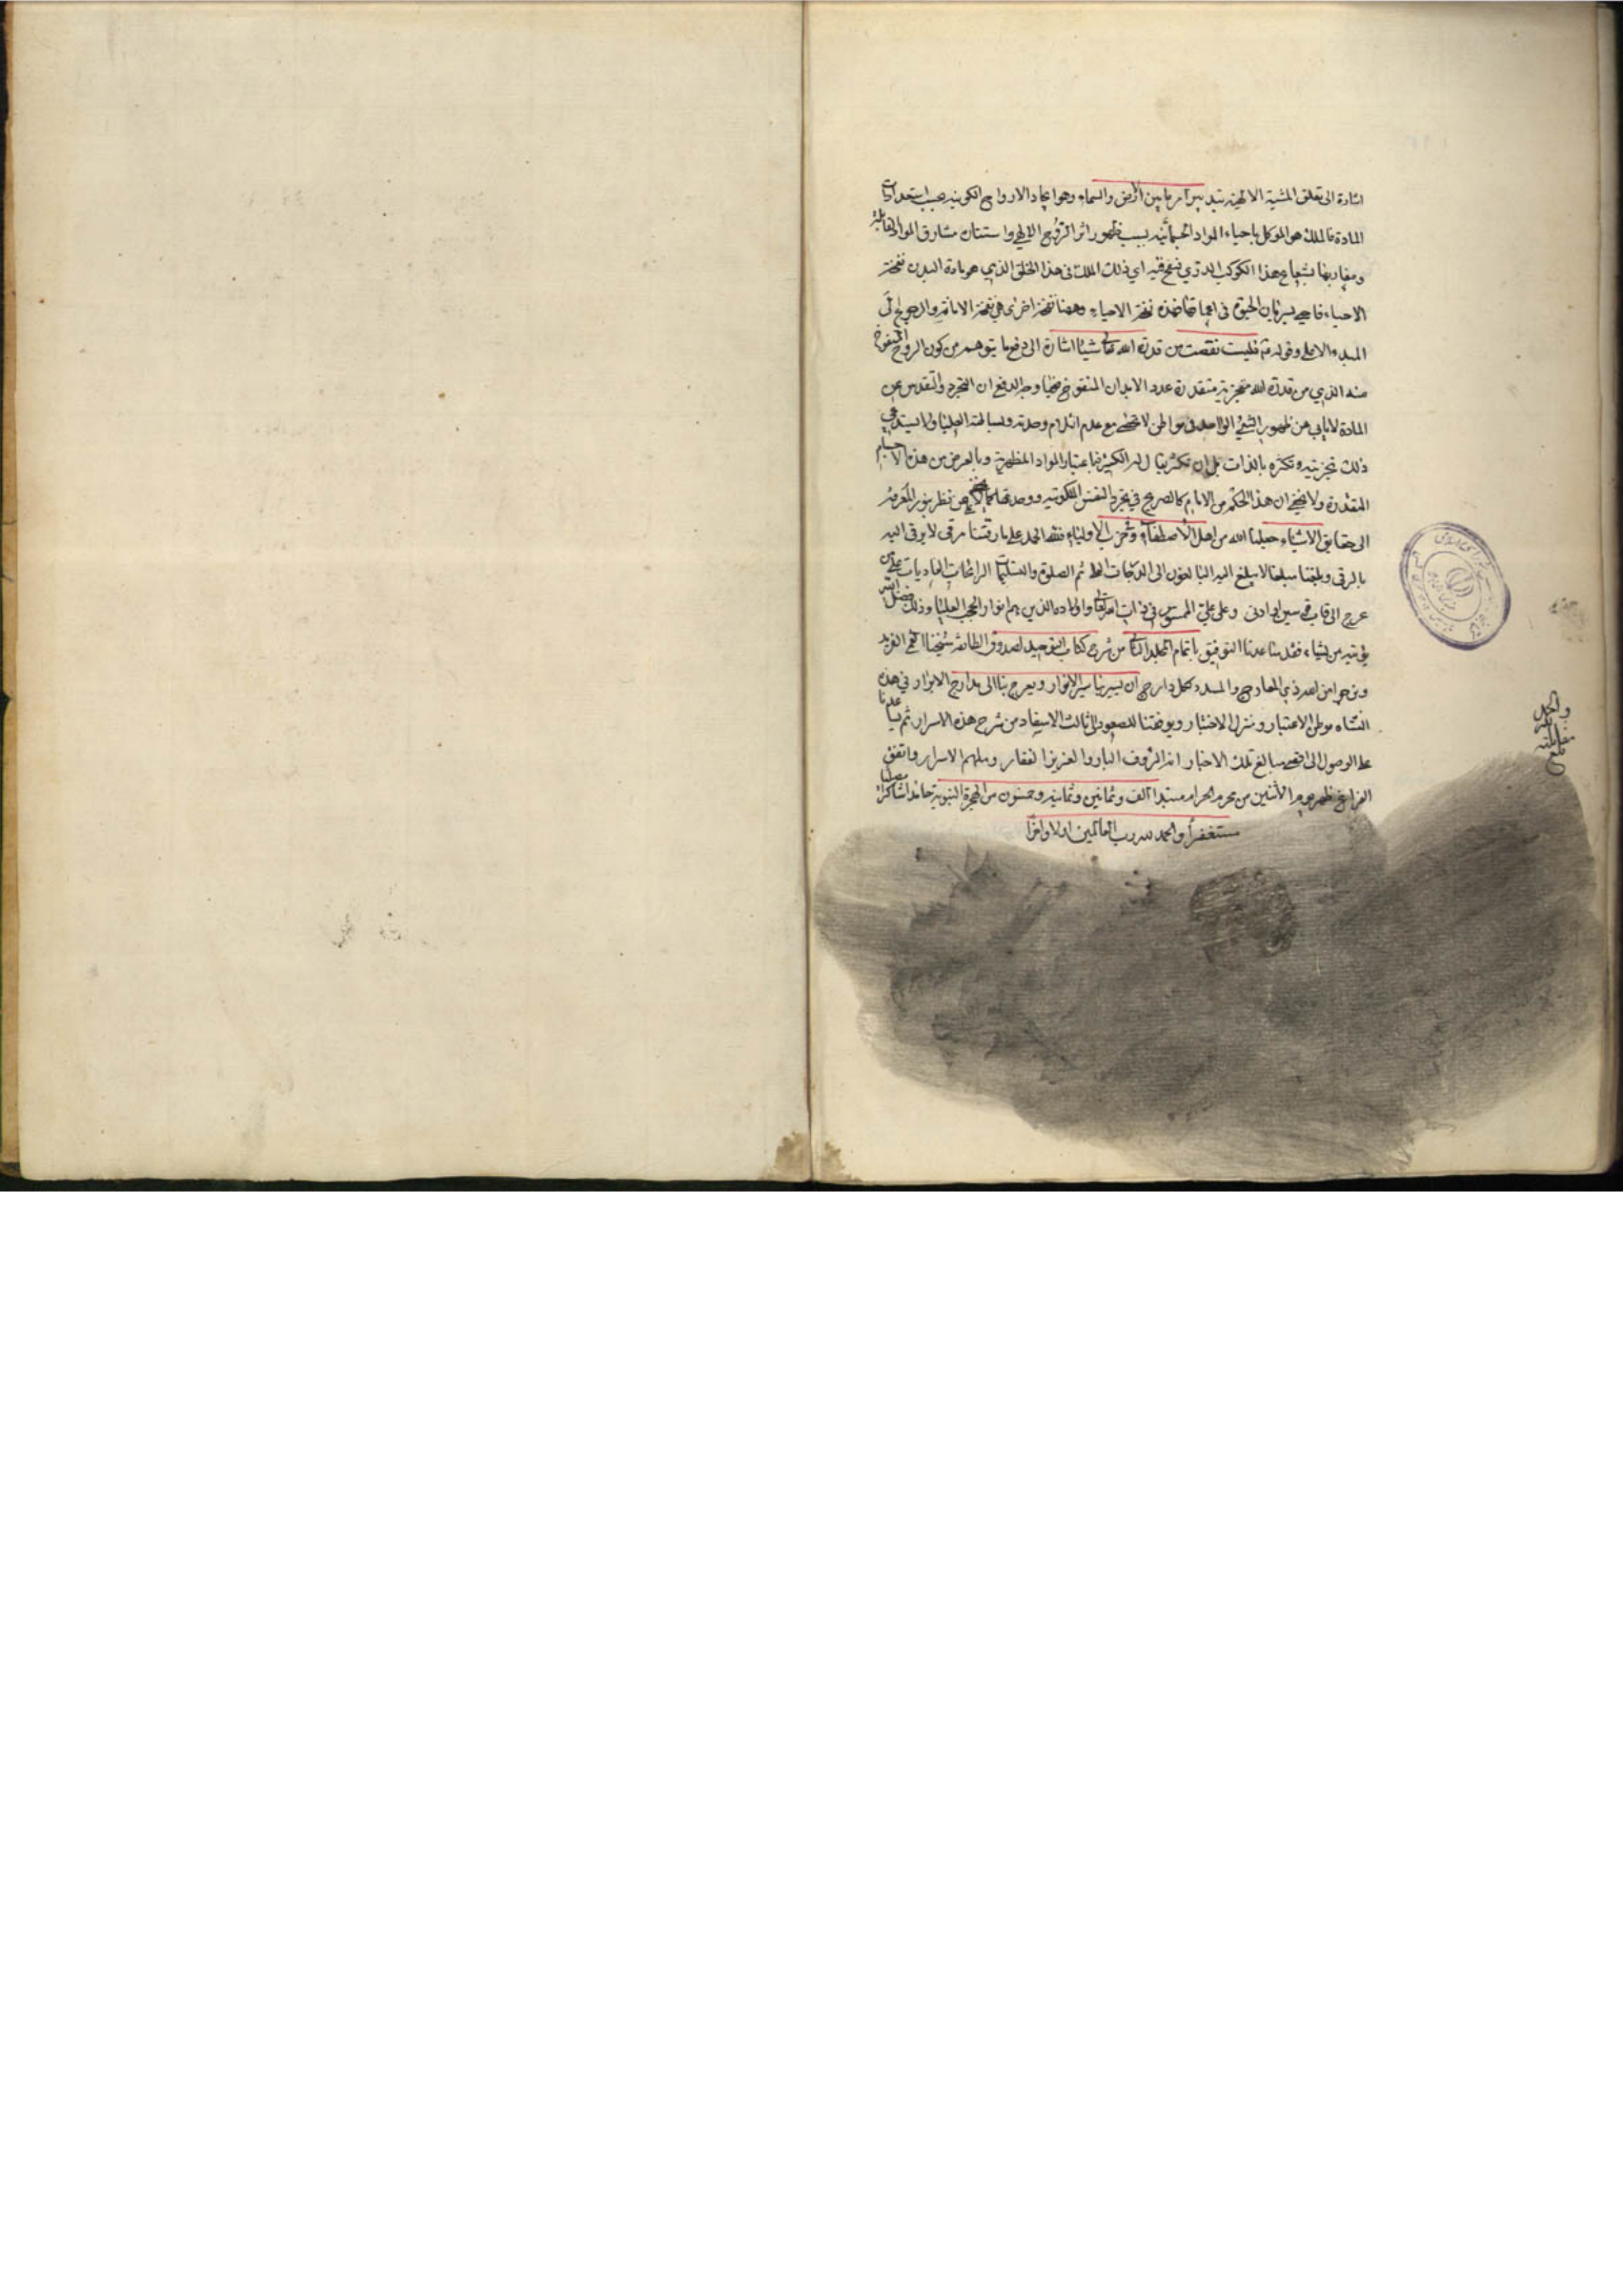 اشارة الى تعلق المشية الالهية بتدبير امر ما بين الأرض والسماء وهو ايجاد الارواح الكونية بحسب استعدادات
المادة فالملك هو الموكل باحياء المواد الجسمانية بسبب ظهور اثر الروح الالهي واستنارة مشارق المواد القابلة
ومغاربها بشعاع هذا الكوكب الدري فنفخ فيه اي ذلك الملك في هذا الخلق الذي هو مادة البدن نفخة
الاحياء فاحيى بسريان الحيوة في اعماقها فهذه نفخة الاحياء وههنا نفخة اخرى هي نفخة الاماتة والرجوع الى
المبدء الاعلى وقوله فليست نقصت من قدرة الله شيئا اشارة الى دفع ما يتوهم من كون الروح المنفوخ
منه الذي من قدرة الله متجزية متقدرة عدد الابدان المنفوخ فيها وجه الدفع ان التجرد والتقدس عن
المادة لا يابى عن ظهور الشيء الواحد في مواطن لا تحصى مع عدم انثلام وحدته وبساطته العليا ولا يستدعي
ذلك تجزيته وتكثره بالذات بل ان تكثر يقال له الكثير فباعتبار المواد المظهرية وبالعرض من هذه الاجسام
المتقدرة ولا يخفى ان هذا الحكم من الامام كالصريح في تجرد النفس الملكوتية ووحدتها كما لا يخفى على من نظر بنور المعرفة
الى حقايق الاشياء جعلنا الله من اهل الأصطفاء وحزب الاولياء فلله الحمد على ما رقينا مرقى لا يرقى اليه
بالرقى وبلغنا مبلغا لا يبلغ اليه البالغون الى الدرجات العلى ثم الصلوة والتسليمات الرائحات الغاديات على من
عرج الى قاب قوسين او ادنى وعلى علي الممسوس في ذات الله تعالى واولاده الذين هم انوار الحجب العليا وذلك فضل الله
يؤتيه من يشاء فقد ساعدنا التوفيق باتمام المجلد الثاني من شرح كتاب التوحيد لصدوق الطائفة شيخنا القمي الفريد
ونرجو من الله ذي المعارج والمبدء لكل دارج ان يسير بنا سير الانوار ويعرج بنا الى مدارج الابرار في هذه
النشاة موطن الاعتبار ومنزل الاختبار ويوفقنا للصعود الى ثالث الاسفار من شرح هذه الاسرار ثم يساعدنا
على الوصول الى اقصى مبالغ تلك الاخبار انه الرؤف البار والعزيز الغفار وملهم الاسرار واتفق
الفراغ ظهر يوم الأثنين من محرم الحرام مبتدأ الف وثمانين وثمانيه وخمسون من الهجرة النبوية حامدا شاكرا مصليا
مستغفرا والحمد لله رب العالمين اولا واخرا
بلغ
مقابلته
والحمد لله